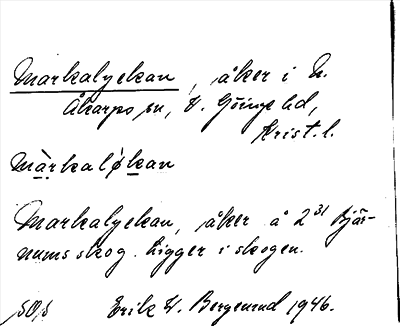 Markalyckan, åker i N.
Åkarps sn, V. Göinge hd,
Krist. l.
màrkaløkan
Markalyckan, åker å 2³¹ Bjär-
nums skog. Ligger i skogen.
Erik W. Bergenrud 1946.